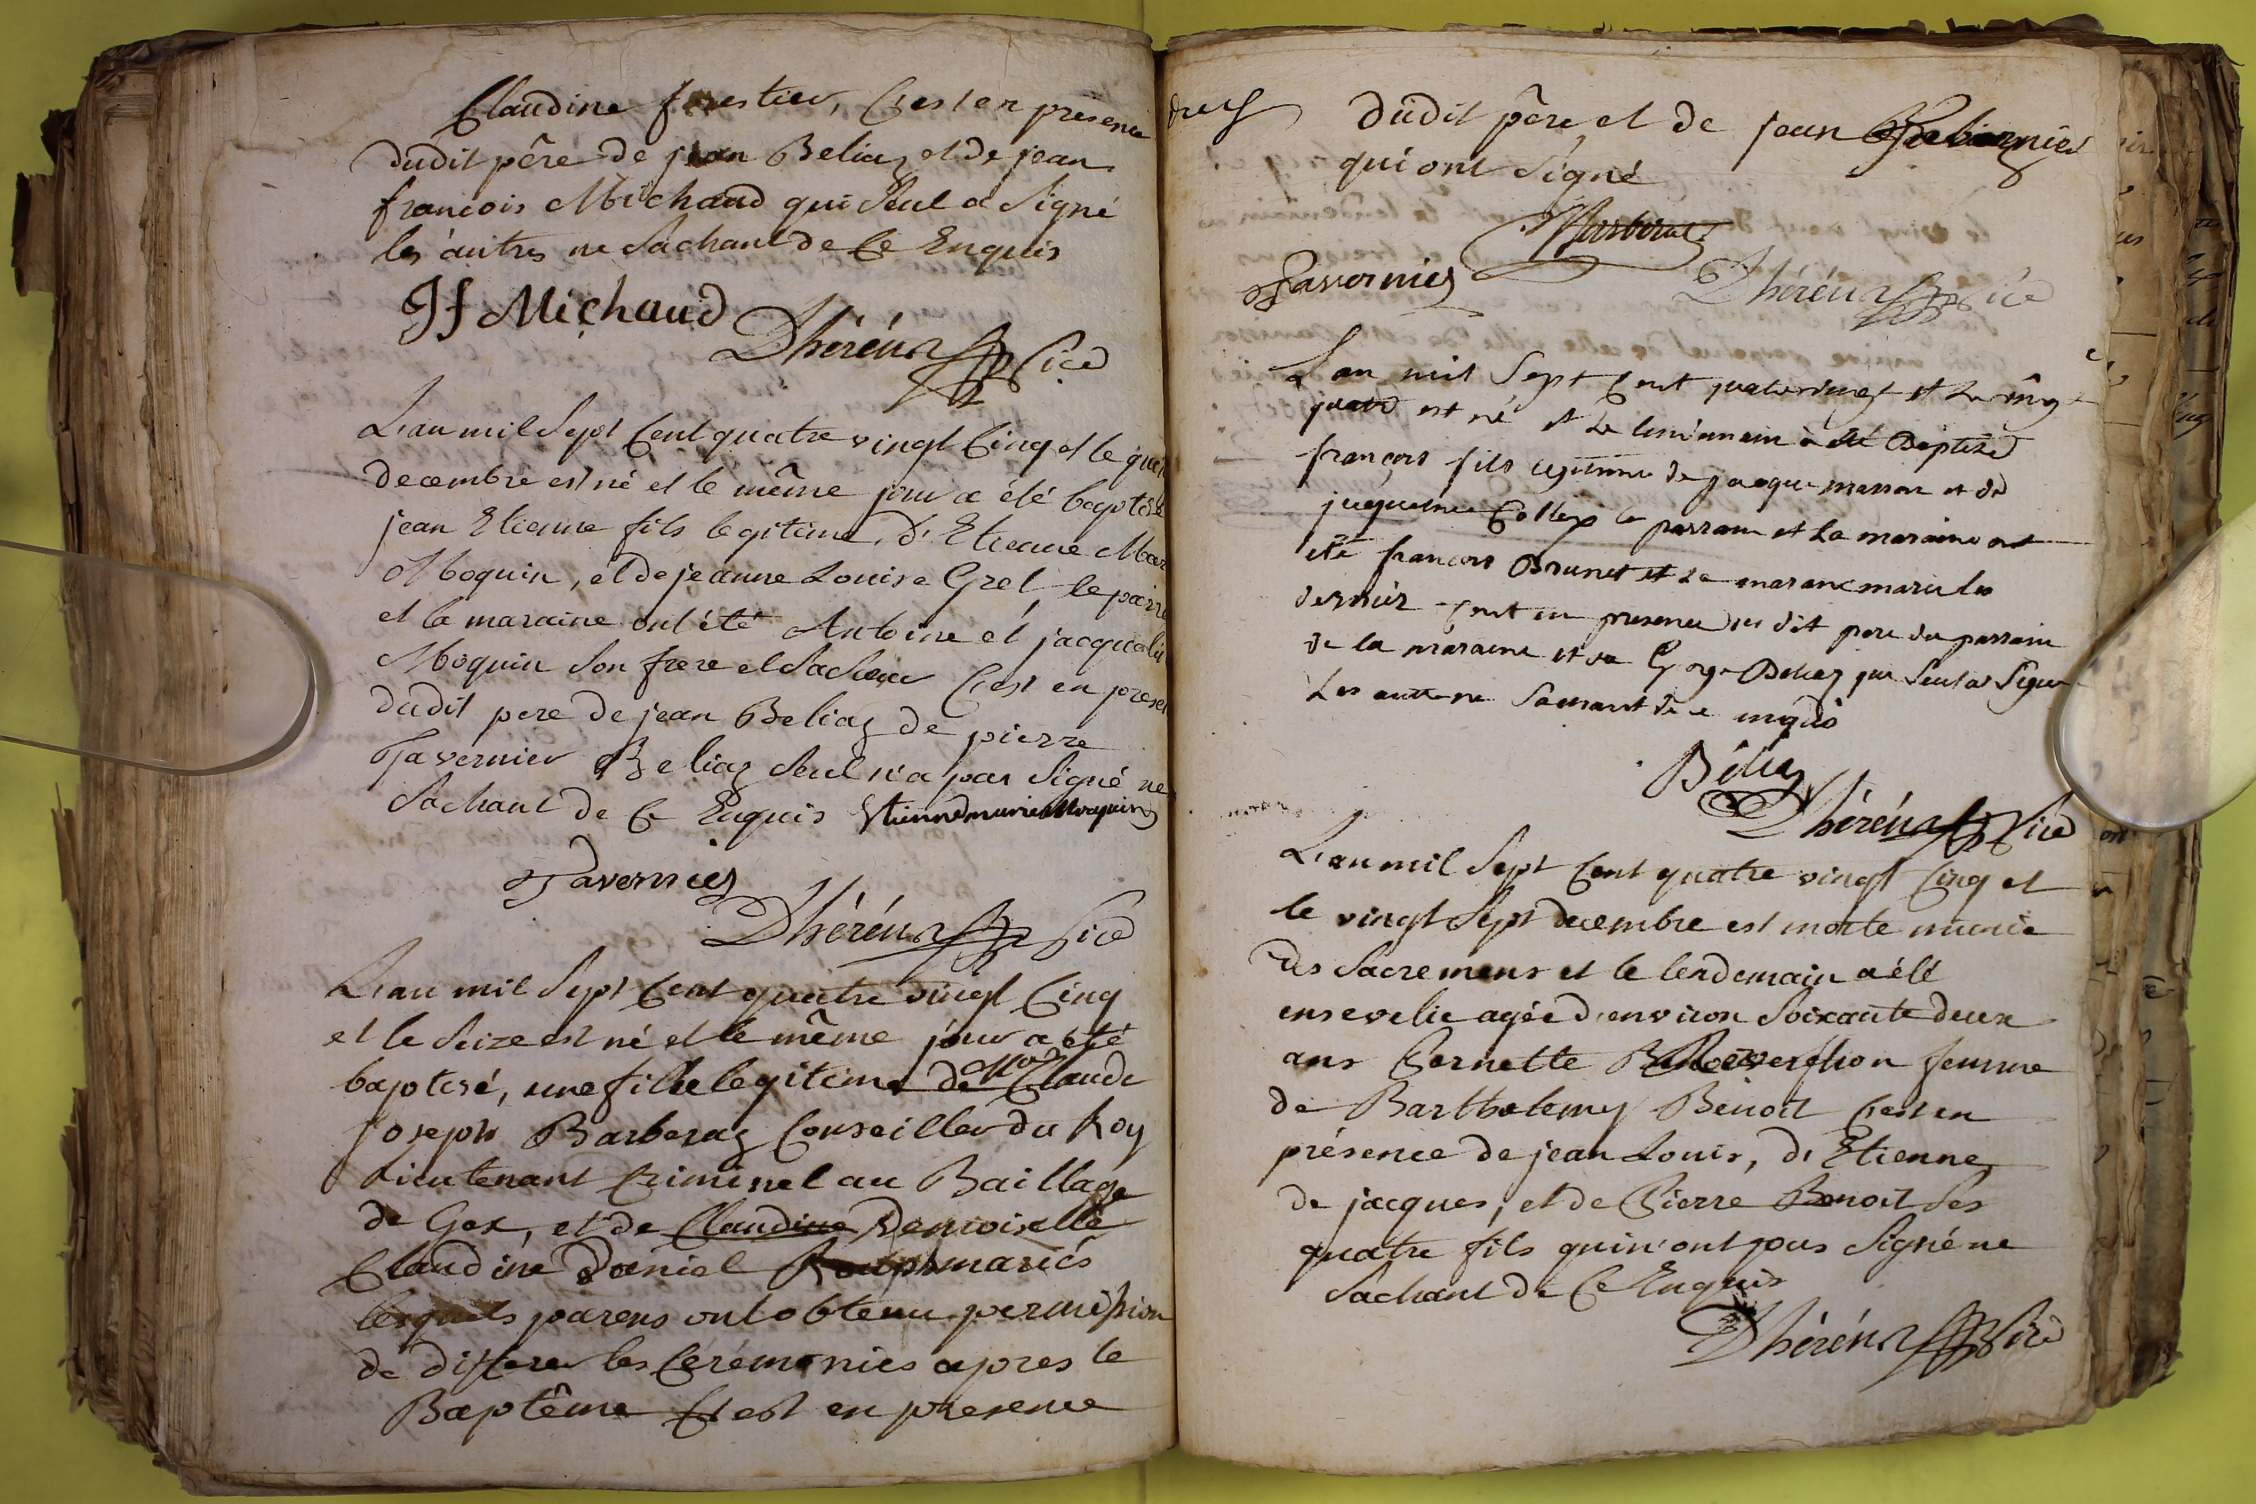 Claudine forestier, C'est en presence
dudit pêre de jean Beliaz et de jean
françois Michaud qui Seul a Signé
les autres ne Sachant de Ce Enquis
Jf Michaud
Dhéréns Vice
L'an mil Sept Cent quatre vingt Cinq et le
decembre est né et le même jour a été baptisé
jean Etienne fils legitime d'Etienne
Moquin, et de jeanne Louise Grel le
et la maraine ont été Antoine et
Moquin Son frere et Sa Soeur C'est en
dudit pere de jean Beliaz de pierre
Tavernier Beliaz Seul n'a pas Signé ne
Sachant de Ce Enquis Etienne marie Moquin
Tavernier
Dhéréns Vice
L'an mil Sept Cent quatre vingt Cinq
et le Seize est né et le même jour a été
baptisé, une fille legitime de Claude
Joseph Barberaz Conseiller du Roy
Lieutenant Criminel au Baillage
de Gex, et de Claudine Demoiselle
Claudine Daniel mariés
lesquels parens ont obtenu permission
de differer les Cérémonies apres le
Baptême C'est en presence
dudit pêre et de jean
qui ont Signé
Barberaz
Tavernier
Dhéréns Vice
L'an mil Sept Cent quatrevingt et Le vingt
est né et Le lendemain a été Baptisé
françois fils legitime de jacque masson et de
Collex Le parrain et La maraine ont
été françois Brunet et La marane marie
dernier C'est en presence du dit pere du parrain
de la maraine et de George Beliaz qui Seul a Signé
Les autre ne Sachant de ce enquis
Béliaz
Dhéréns Vice
L'an mil Sept Cent quatre vingt Cinq et
le vingt Sept decembre est morte munie
des Sacremens et le lendemain a été
ensevelie agée d'environ Soixante deux
ans Pernette femme
de Barthelemy Benoit C'est en
présence de jean Louis, d'Etienne,
de jacques, et de Pierre Benoit Ses
quatre fils qui n'ont pas Signé ne
Sachant de Ce Enquis
Dhéréns Vice